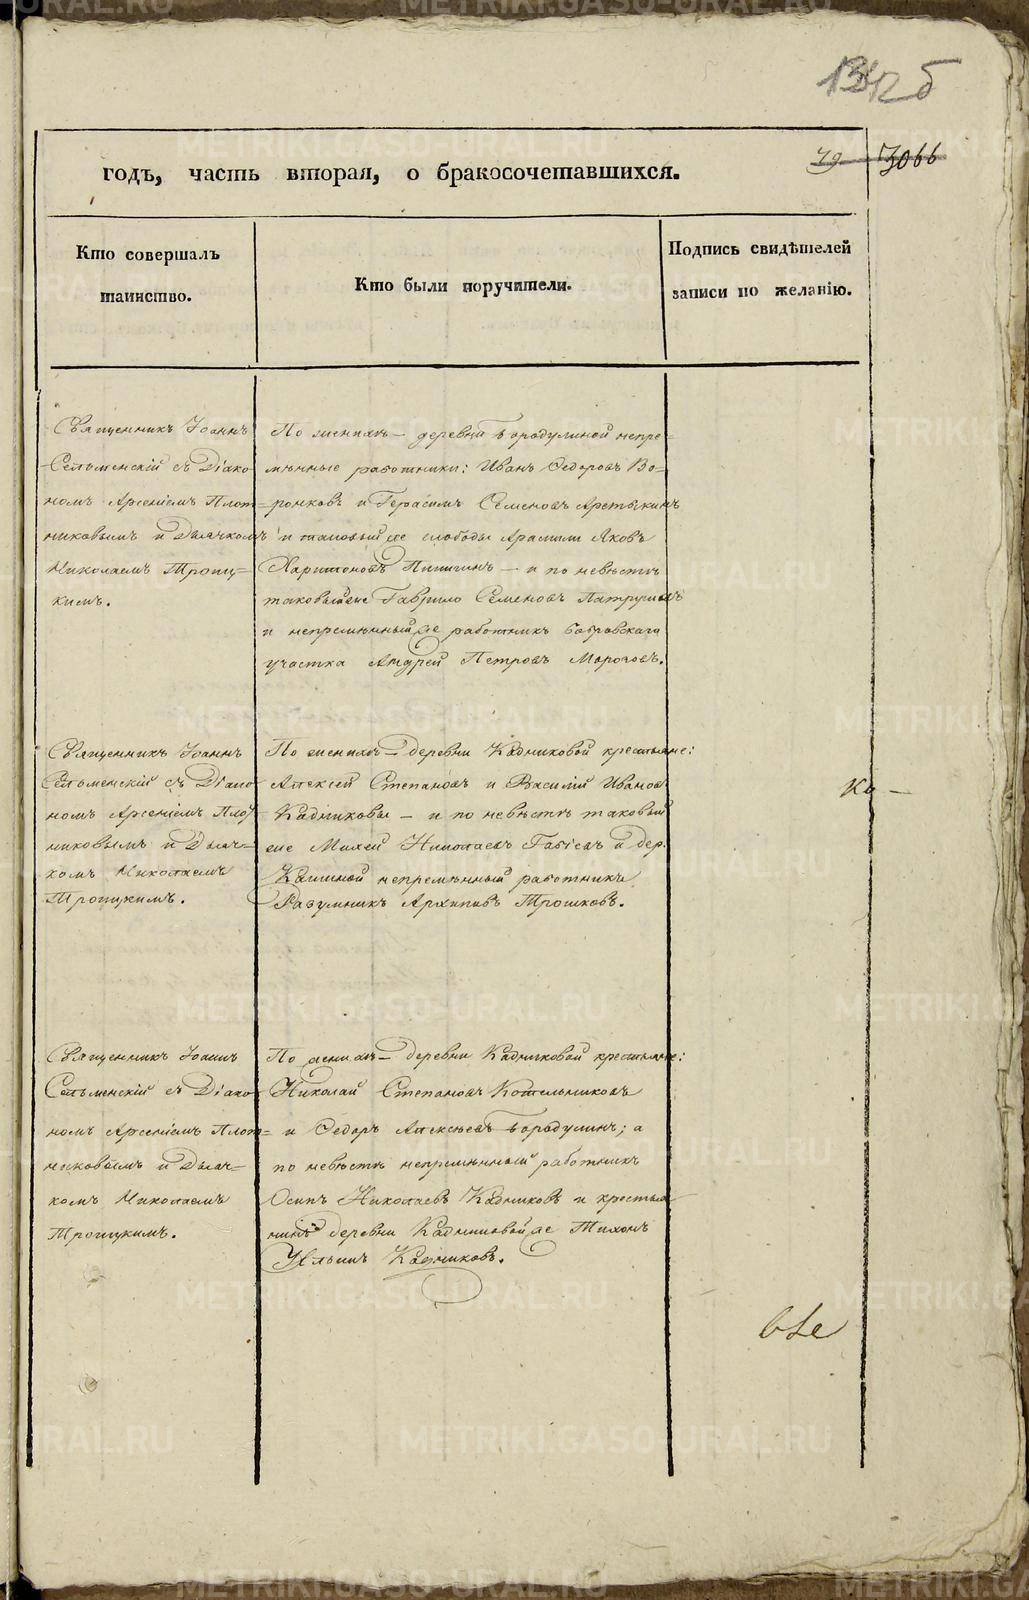 годъ, часть вторая, о бракосочетавшихся.
79 3066
Кто совершалъ
таинство.
Кто были поручители.
Подпись свидѣтелей
записи по желанію.
Священникъ Іоаннъ
Сельменскій съ Діако-
номъ Арсеніемъ Плот=
никовымъ и Дьячкомъ
Николаемъ Троиц=
кимъ.
По женихѣ – деревни Бородулиной непре=
мѣнные работники: Иванъ Ѳедоровъ Во=
ронковъ и Герасимъ Семеновъ Аретькинъ
и таковый же слободы Арамили Яковъ
Харитоновъ – и по невѣстѣ
таковый же Гаврило Семеновъ Патрушевъ
и непремѣнный же работникъ Бобровскаго
участка Андрей Петровъ Морозовъ.
Священникъ Іоаннъ
Сельменскій съ Діако
номъ Арсеніемъ Плот=
никовымъ и Дьяч=
комъ Николаемъ
Троицкимъ.
По женихѣ – деревни Кадниковой крестьяне:
Алексѣй Степановъ и Василій Ивановъ
Кадниковы – и по невѣстѣ таковый
же Михей Николаевъ и дер.
непремѣнный работникъ
Разумникъ Архиповъ Трошковъ.
Ка –
Священникъ Іоаннъ
Сельменскій съ Діако
номъ Арсеніемъ Плот=
никовымъ и Дьяч=
комъ Николаемъ
Троицкимъ.
По женихѣ – деревни Кадниковой крестьяне:
Николай Степановъ Котельниковъ
и Ѳедоръ Алексѣевъ Бородулинъ; а
по невѣстѣ непремѣнный работникъ
Осипъ Николаевъ Кадниковъ и крестья
нинъ деревни Кадниковой же Тихонъ
Ульинъ Кадниковъ.
METRIKI.GASO-URAL.RU